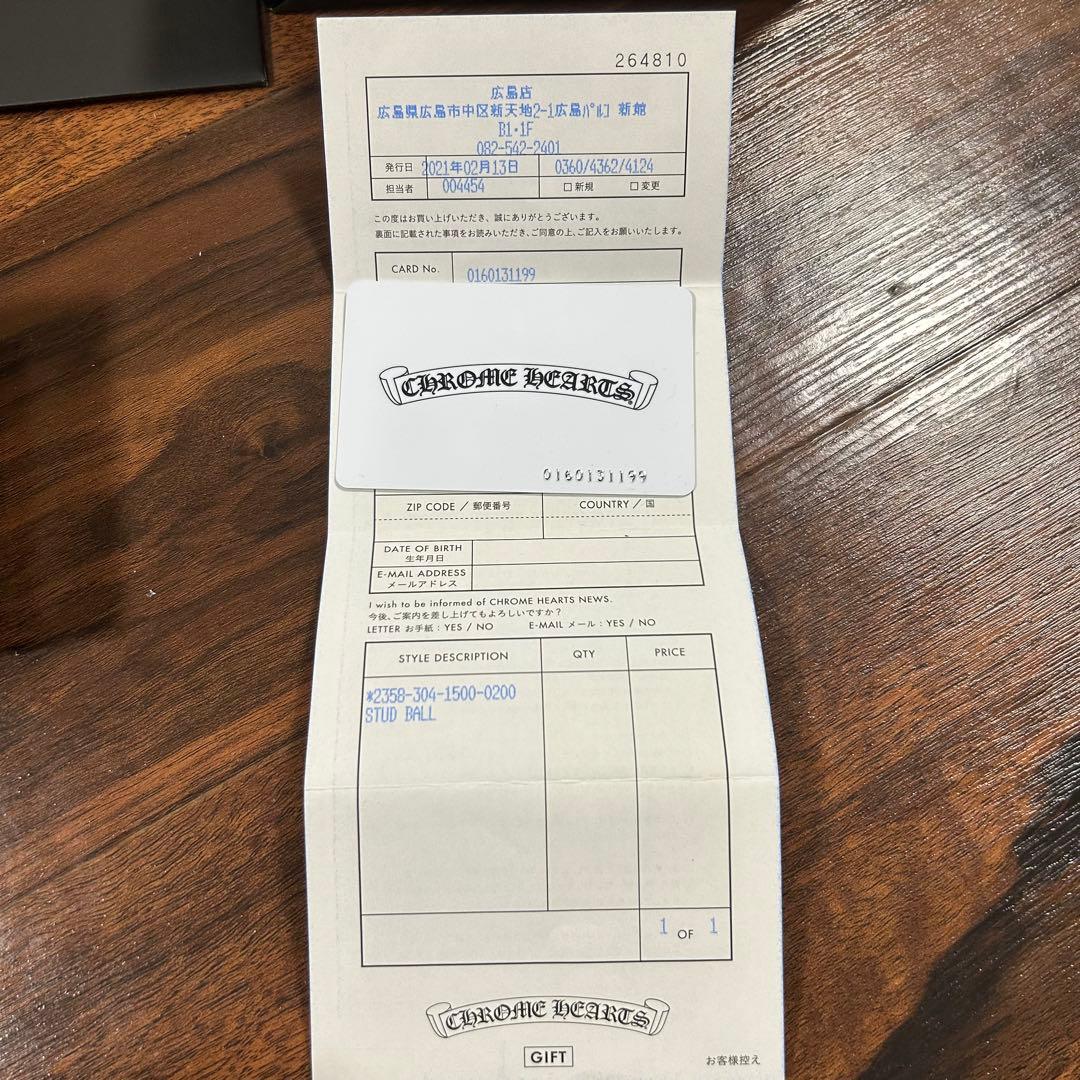 264810
広島店
広島県広島市中区新天地2-1広島ﾊﾟﾙｺ 新館
B1・1F
082-542-2401
発行日 2021年02月13日 0360/4362/4124
担当者 004454 □ 新規 □ 変更
この度はお買い上げいただき、誠にありがとうございます。
裏面に記載された事項をお読みいただき、ご同意の上、ご記入をお願いいたします。
CARD No. 0160131199
CHROME HEARTS
0160131199
ZIP CODE / 郵便番号 COUNTRY / 国
DATE OF BIRTH
生年月日
E-MAIL ADDRESS
メールアドレス
I wish to be informed of CHROME HEARTS NEWS.
今後、ご案内を差し上げてもよろしいですか？
LETTER お手紙：YES / NO E-MAIL メール：YES / NO
STYLE DESCRIPTION QTY PRICE
*2358-304-1500-0200
STUD BALL
1 OF 1
CHROME HEARTS
GIFT
お客様控え